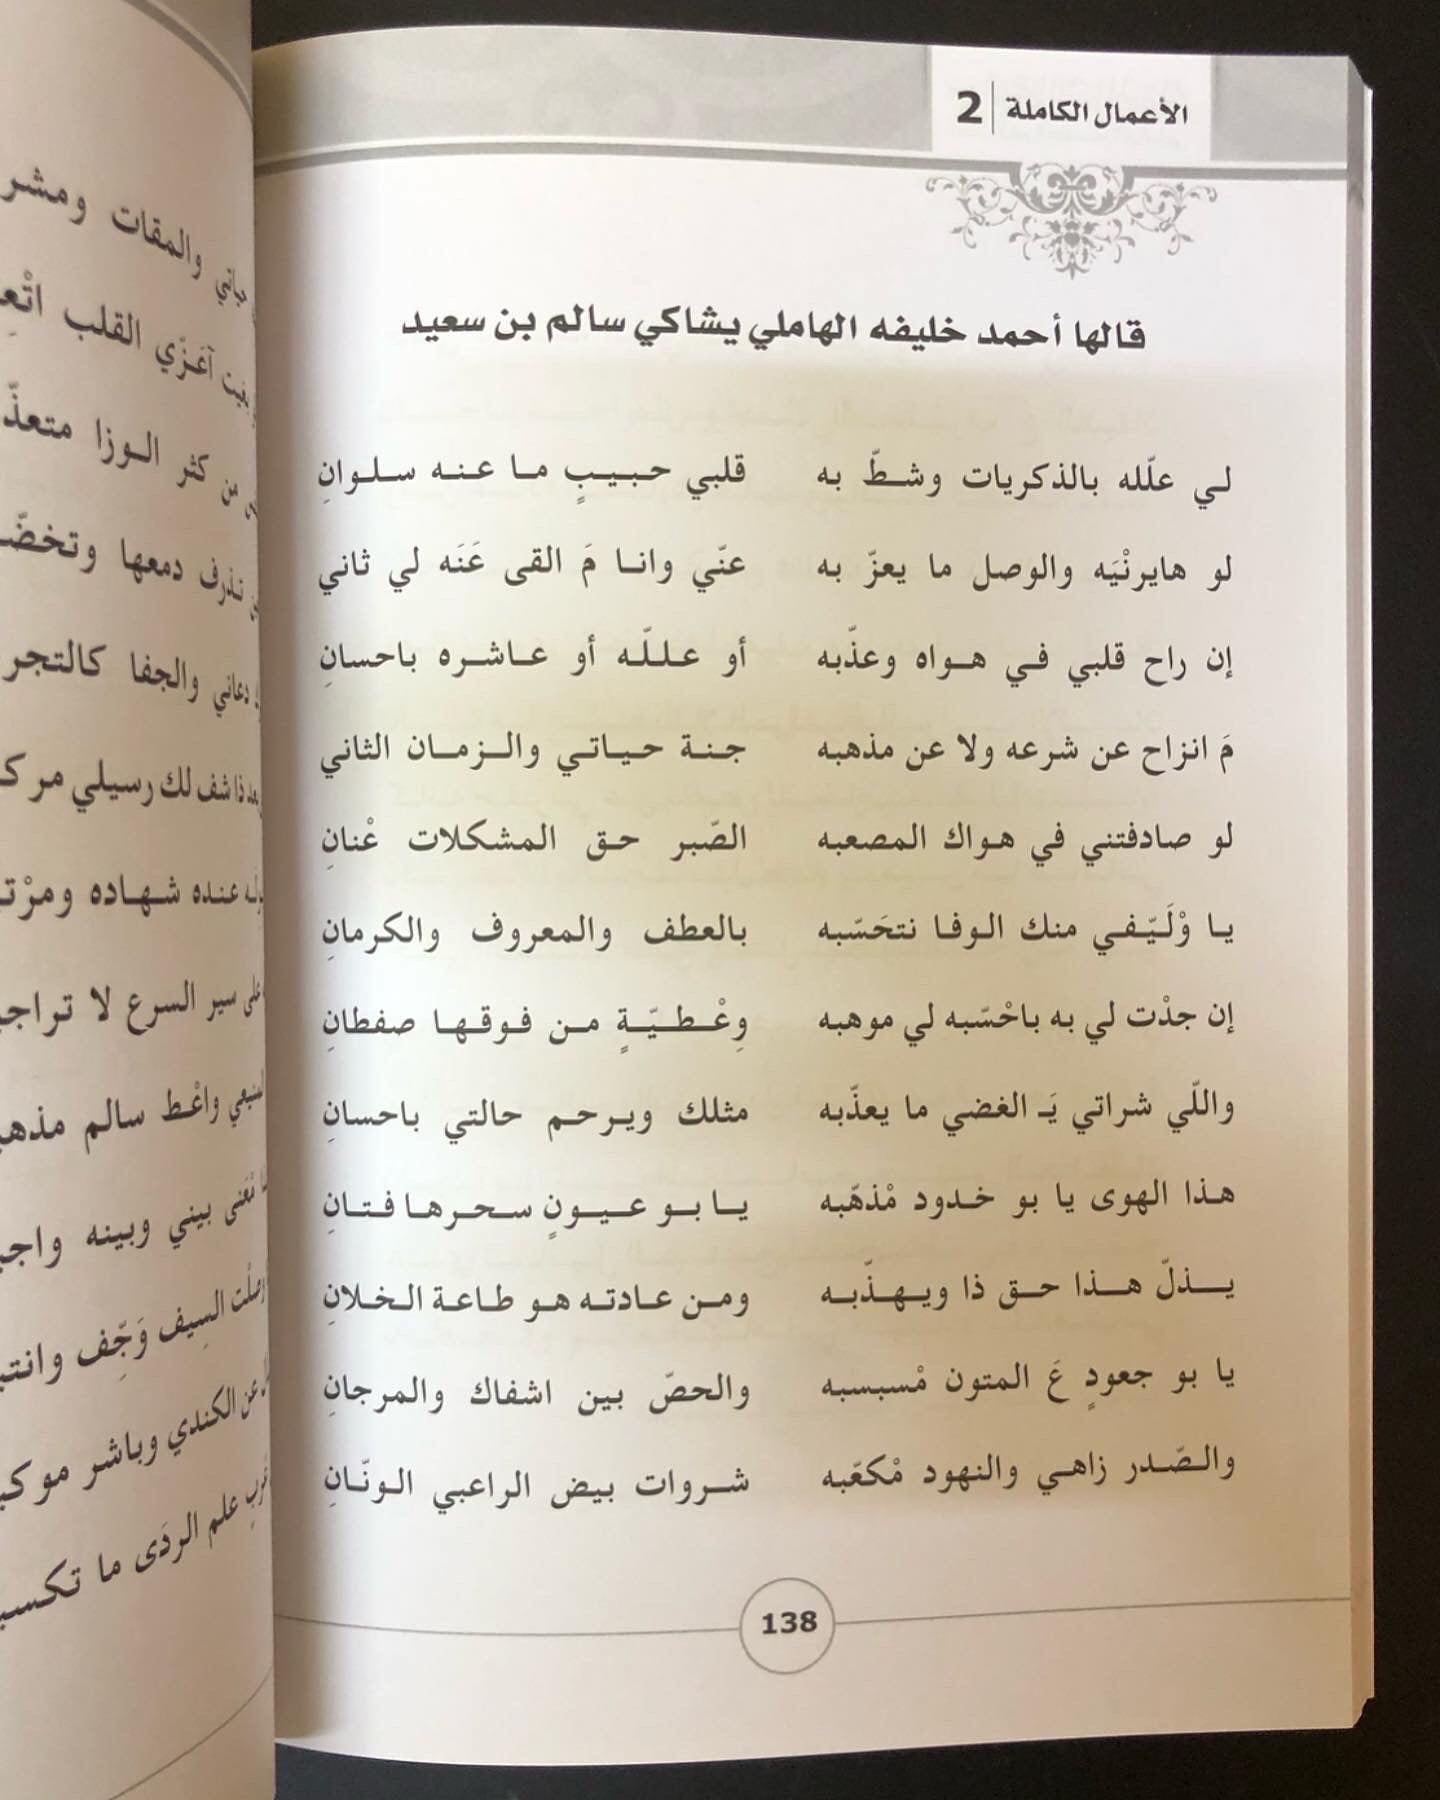 الأعمال الكاملة | 2
قالها أحمد خليفه الهاملي يشاكي سالم بن سعيد
لي علّله بالذكريات وشطّ به قلبي حبيبٍ ما عنه سلوانِ
لو هايرنْيَه والوصل ما يعزّ به عنّي وانا مَ القى عَنَه لي ثاني
إن راح قلبي في هواه وعذّبه أو عللّه أو عاشره باحسانِ
مَ انزاح عن شرعه ولا عن مذهبه جنة حياتي والزمان الثاني
لو صادفتني في هواك المصعبه الصّبر حق المشكلات عْنانِ
يا وْلَيّفي منك الوفا نتحَسّبه بالعطف والمعروف والكرمانِ
إن جدْت لي به باحْسّبه لي موهبه وِعْطيّةٍ من فوقها صفطانِ
واللّي شراتي يَـ الغضي ما يعذّبه مثلك ويرحم حالتي باحسانِ
هذا الهوى يا بو خدود مْذهّبه يا بو عيونٍ سحرها فتانِ
يذلّ هذا حق ذا ويهذّبه ومن عادته هو طاعة الخلانِ
يا بو جعودٍ عَ المتون مْسبسبه والحصّ بين اشفاك والمرجانِ
والصّدر زاهي والنهود مْكعّبه شروات بيض الراعبي الونّانِ
138
والمقات ومشر
آعَزّي القلب اتْعِ
من كثر الوزا متعذّ
نذرف دمعها وتخضّ
دعاني والجفا كالتجر
ذا شف لك رسيلي مر كـ
عنده شهاده ومرْتـ
على سير السرع لا تراجـ
واعْط سالم مذهـ
مْعَنى بيني وبينه واجـ
السِيف وَجِّف وانتـ
عن الكندي وباشر موكـ
علم الردَى ما تكسـ